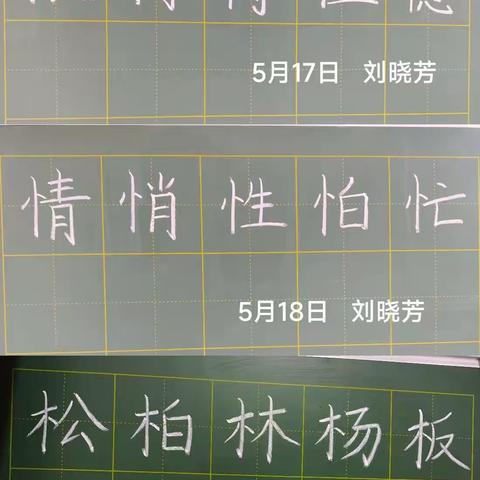 5月17日 刘晓芳
情悄性怕忙
5月18日 刘晓芳
松柏林杨板